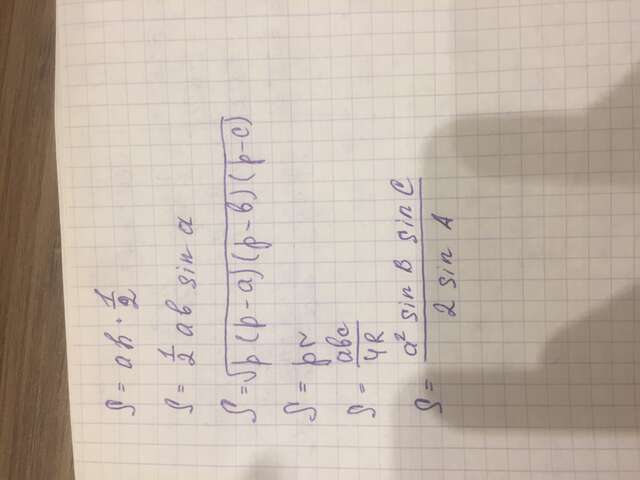 S = ah · 1/2
S = 1/2 ab sin α
S = √p(p-a)(p-b)(p-c)
S = pr
S = abc/4R
S = a² sin B sin C / 2 sin A